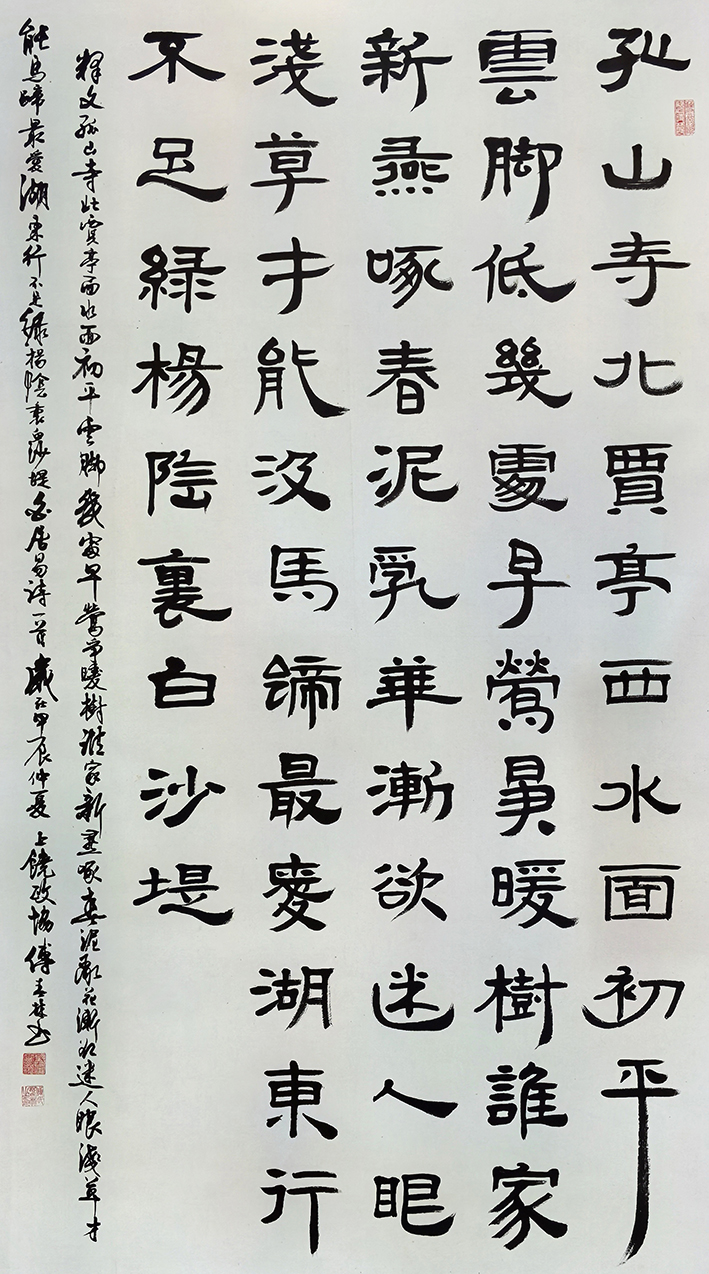 孤山寺北賈亭西水面初平
雲脚低幾處早鶯爭暖樹誰家
新燕啄春泥亂華漸欲迷人眼
淺草才能沒馬蹄最愛湖東行
不足綠楊陰裏白沙堤
釋文孤山寺北賈亭西水面初平雲脚幾處早鶯爭暖樹誰家新燕啄春泥亂花漸欲迷人眼淺草才
能馬蹄最愛湖東行不足綠楊陰裏白沙堤白居易詩一首歲在甲辰仲夏上饒政協傅書